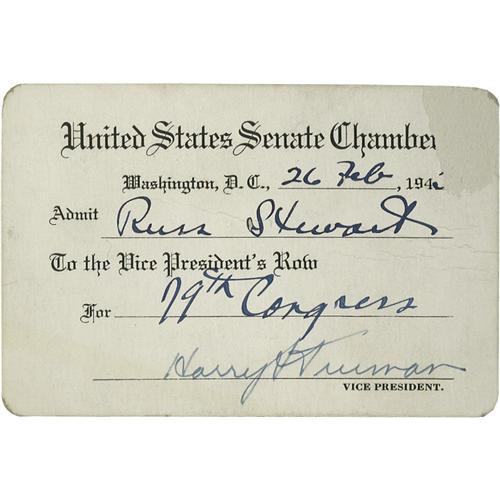 United States Senate Chamber
Washington, D.C., 26 Feb, 194
Admit Russ Stewart
To the Vice President's Row
For 79th Congress
Harry S Truman
VICE PRESIDENT.